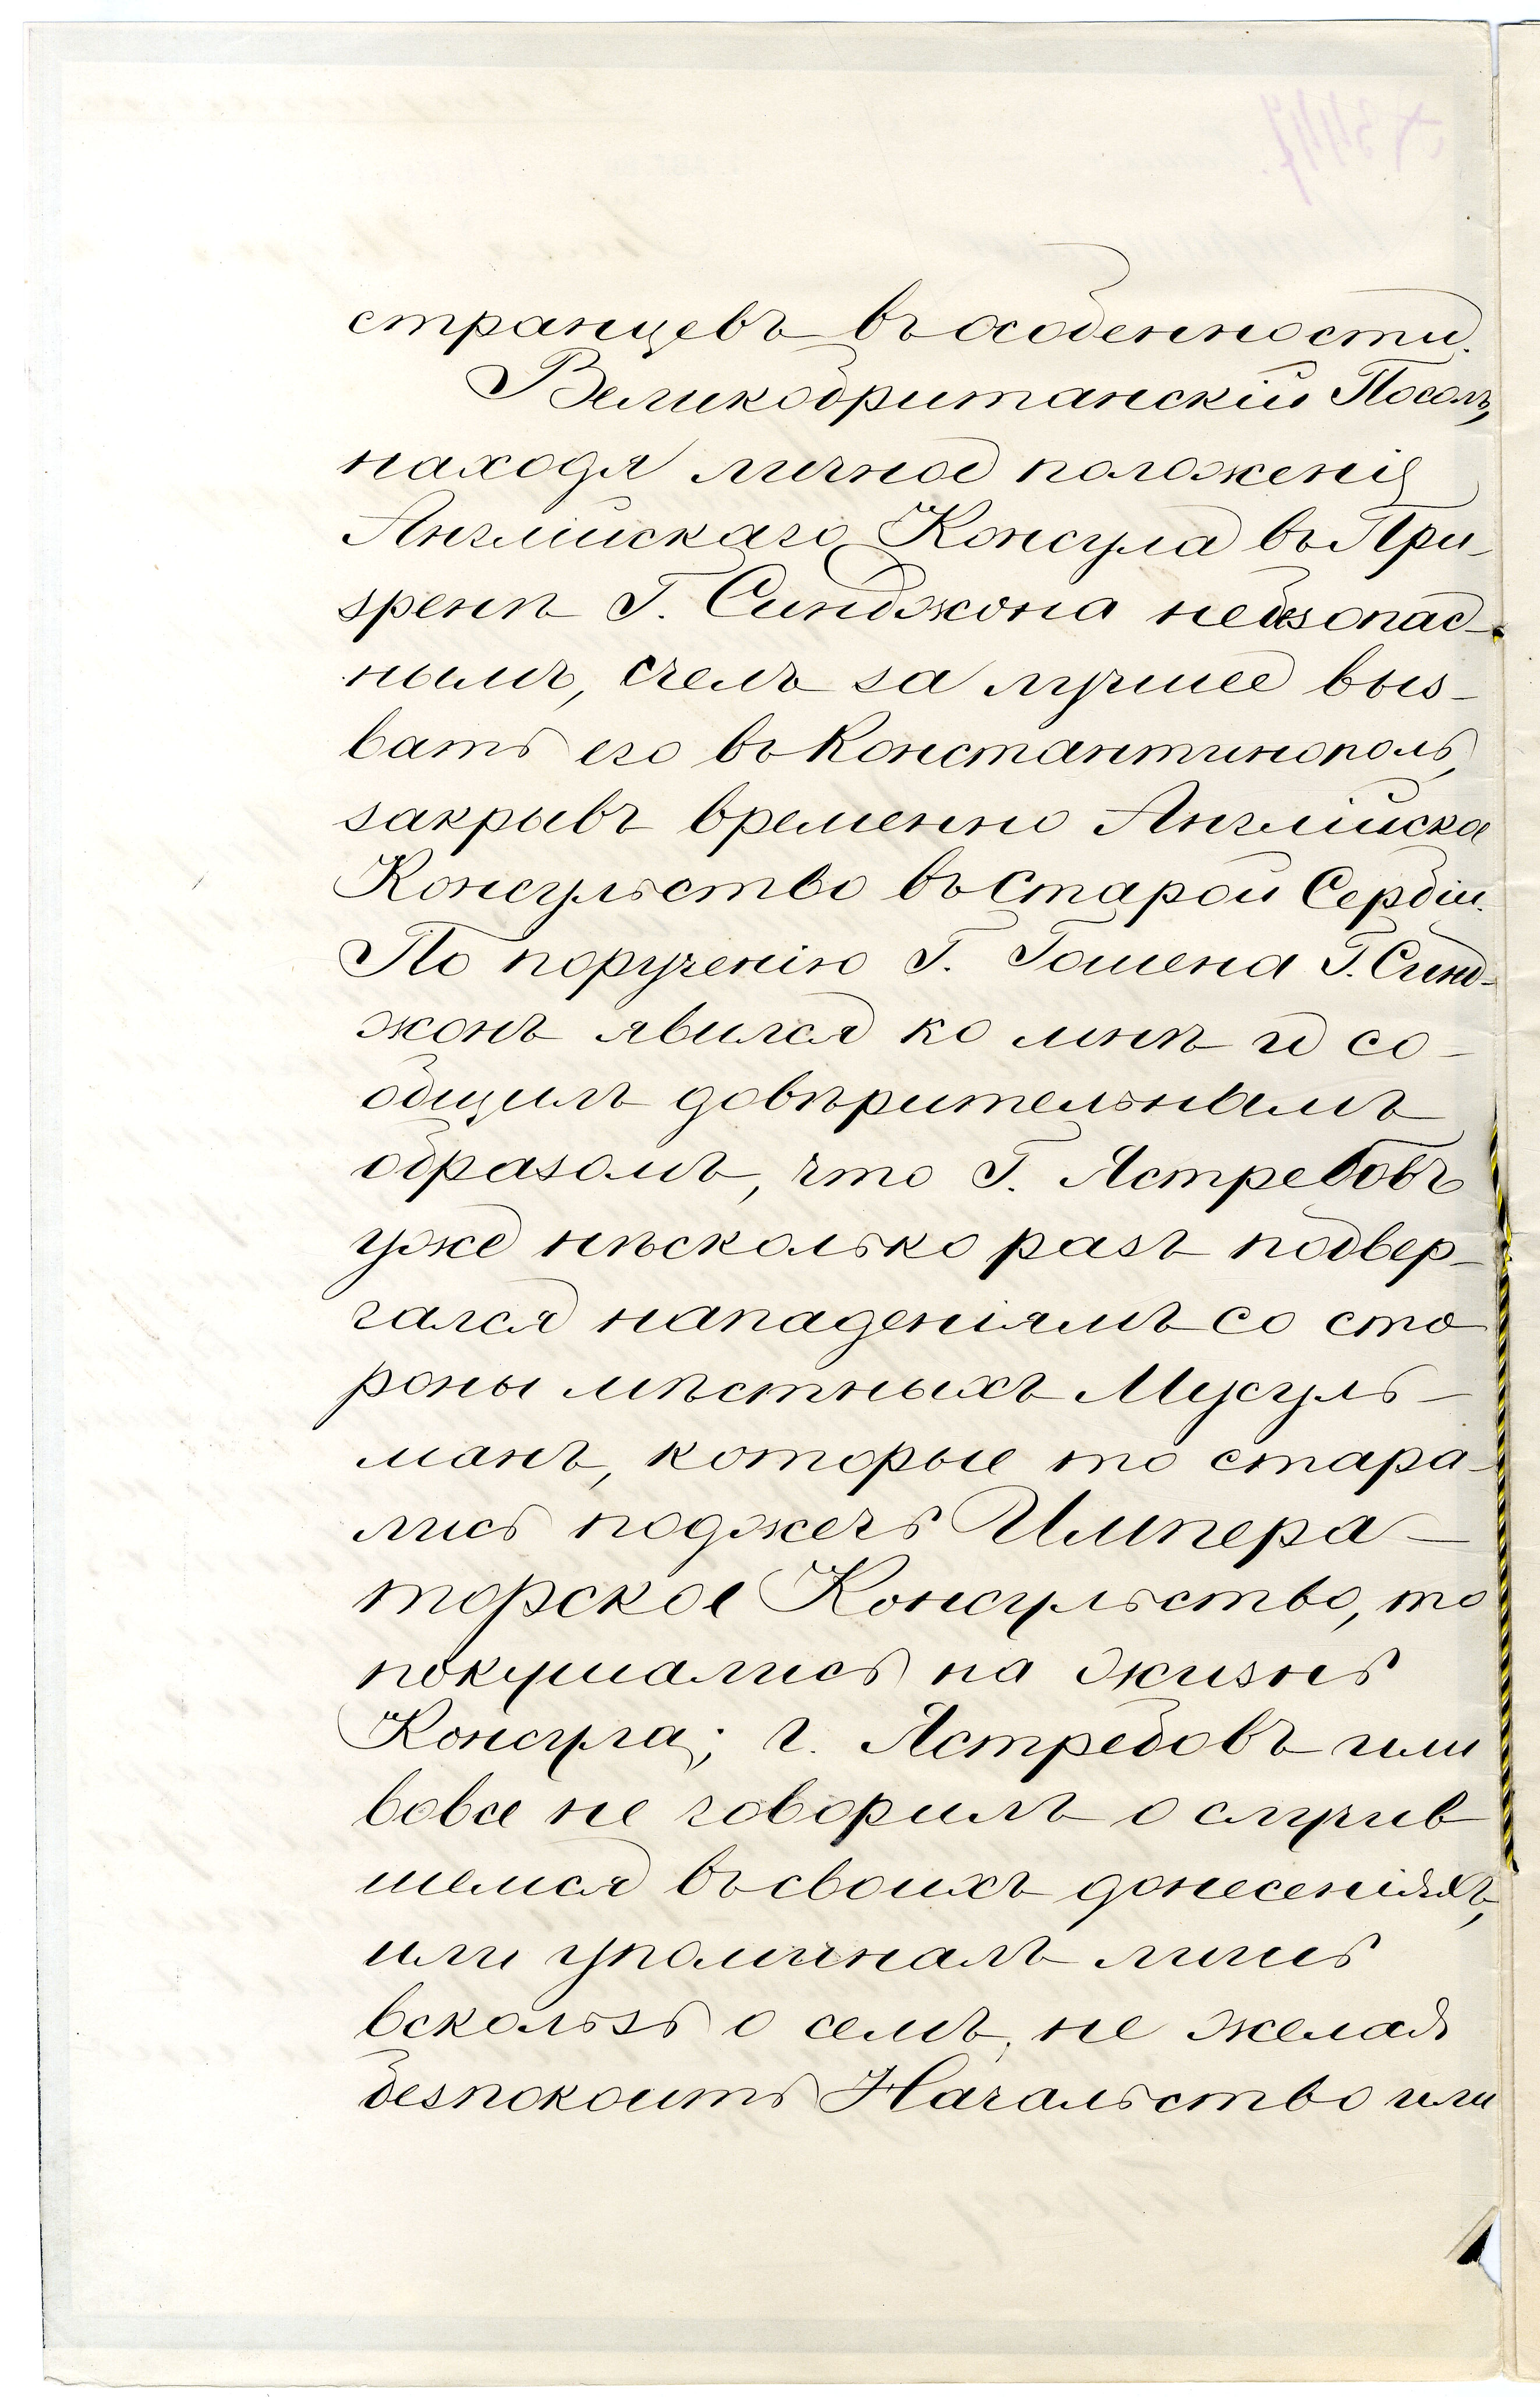 странцевъ въ особенности.
Великобританскій Посолъ,
находя личное положеніе
Англійскаго Консула въ При-
зренѣ Г. Синджона небезопас-
нымъ, счелъ за лучшее выз-
вать его въ Константинополь,
закрывъ временно Англійское
Консульство въ Старой Сербіи.
По порученію Г. Гошена Г. Синд-
жонъ явился ко мнѣ и со-
общилъ довѣрительнымъ
образомъ, что Г. Ястребовъ
уже нѣсколько разъ подвер-
гался нападеніямъ со сто
роны мѣстныхъ Мусуль-
манъ, которые то стара-
лись поджечь Импера-
торское Консульство, то
покушались на жизнь
Консула; г. Ястребовъ или
вовсе не говорилъ о случив
шемся въ своихъ донесеніяхъ,
или упоминалъ лишь
вскользь о семъ, не желая
безпокоить Начальство или